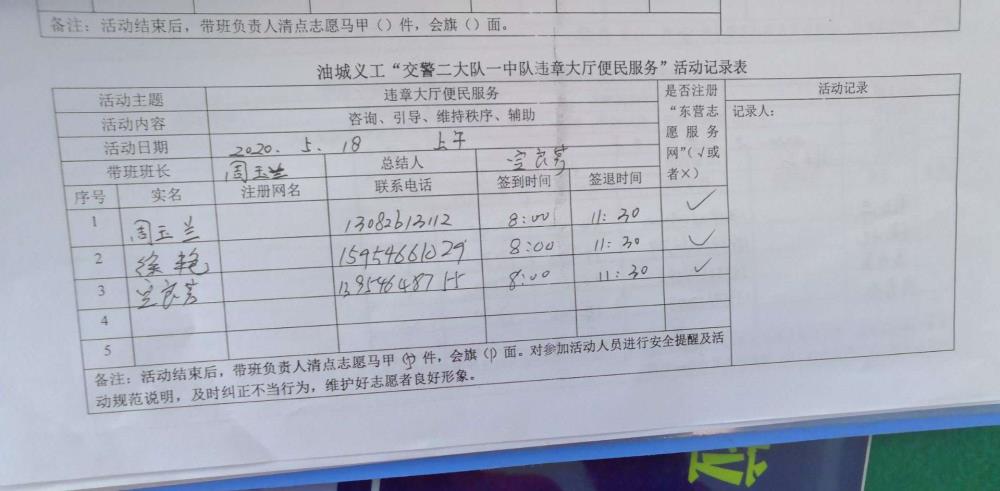 备注：活动结束后，带班负责人清点志愿马甲（）件，会旗（）面。
油城义工“交警二大队一中队违章大厅便民服务”活动记录表
活动主题 违章大厅便民服务 是否注册“东营志愿服务网”（√或者×） 活动记录
活动内容 咨询、引导、维持秩序、辅助 记录人：
活动日期 2020. 5. 18 上午
带班班长 周玉兰 总结人
序号 实名 注册网名 联系电话 签到时间 签退时间
1 周玉兰 13082613112 8:00 11:30 ✓
2 徐艳 15954661029 8:00 11:30 ✓
3 8:00 11:30 ✓
4
5
备注：活动结束后，带班负责人清点志愿马甲（）件，会旗（1）面。对参加活动人员进行安全提醒及活
动规范说明，及时纠正不当行为，维护好志愿者良好形象。